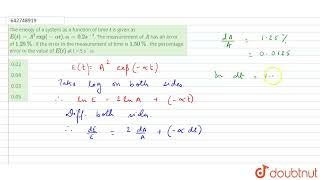 642748919
The energy of a system as a function of time t is given as
E(t) = A² exp(−αt), α = 0.2 s⁻¹. The measurement of A has an error
of 1.25 %. If the error in the measurement of time is 1.50 %, the percentage
error in the value of E(t) at t = 5 s
0.02
0.04
0.03
0.05
E(t) = A² exp(-αt)
Take log on both sides.
∴ ln E = 2 ln A + (-αt)
Diff. both sides.
∴ dE/E = 2 dA/A + (-α dt)
dA/A = 1.25 %
= 0.0125
dt = 1.
doubtnut